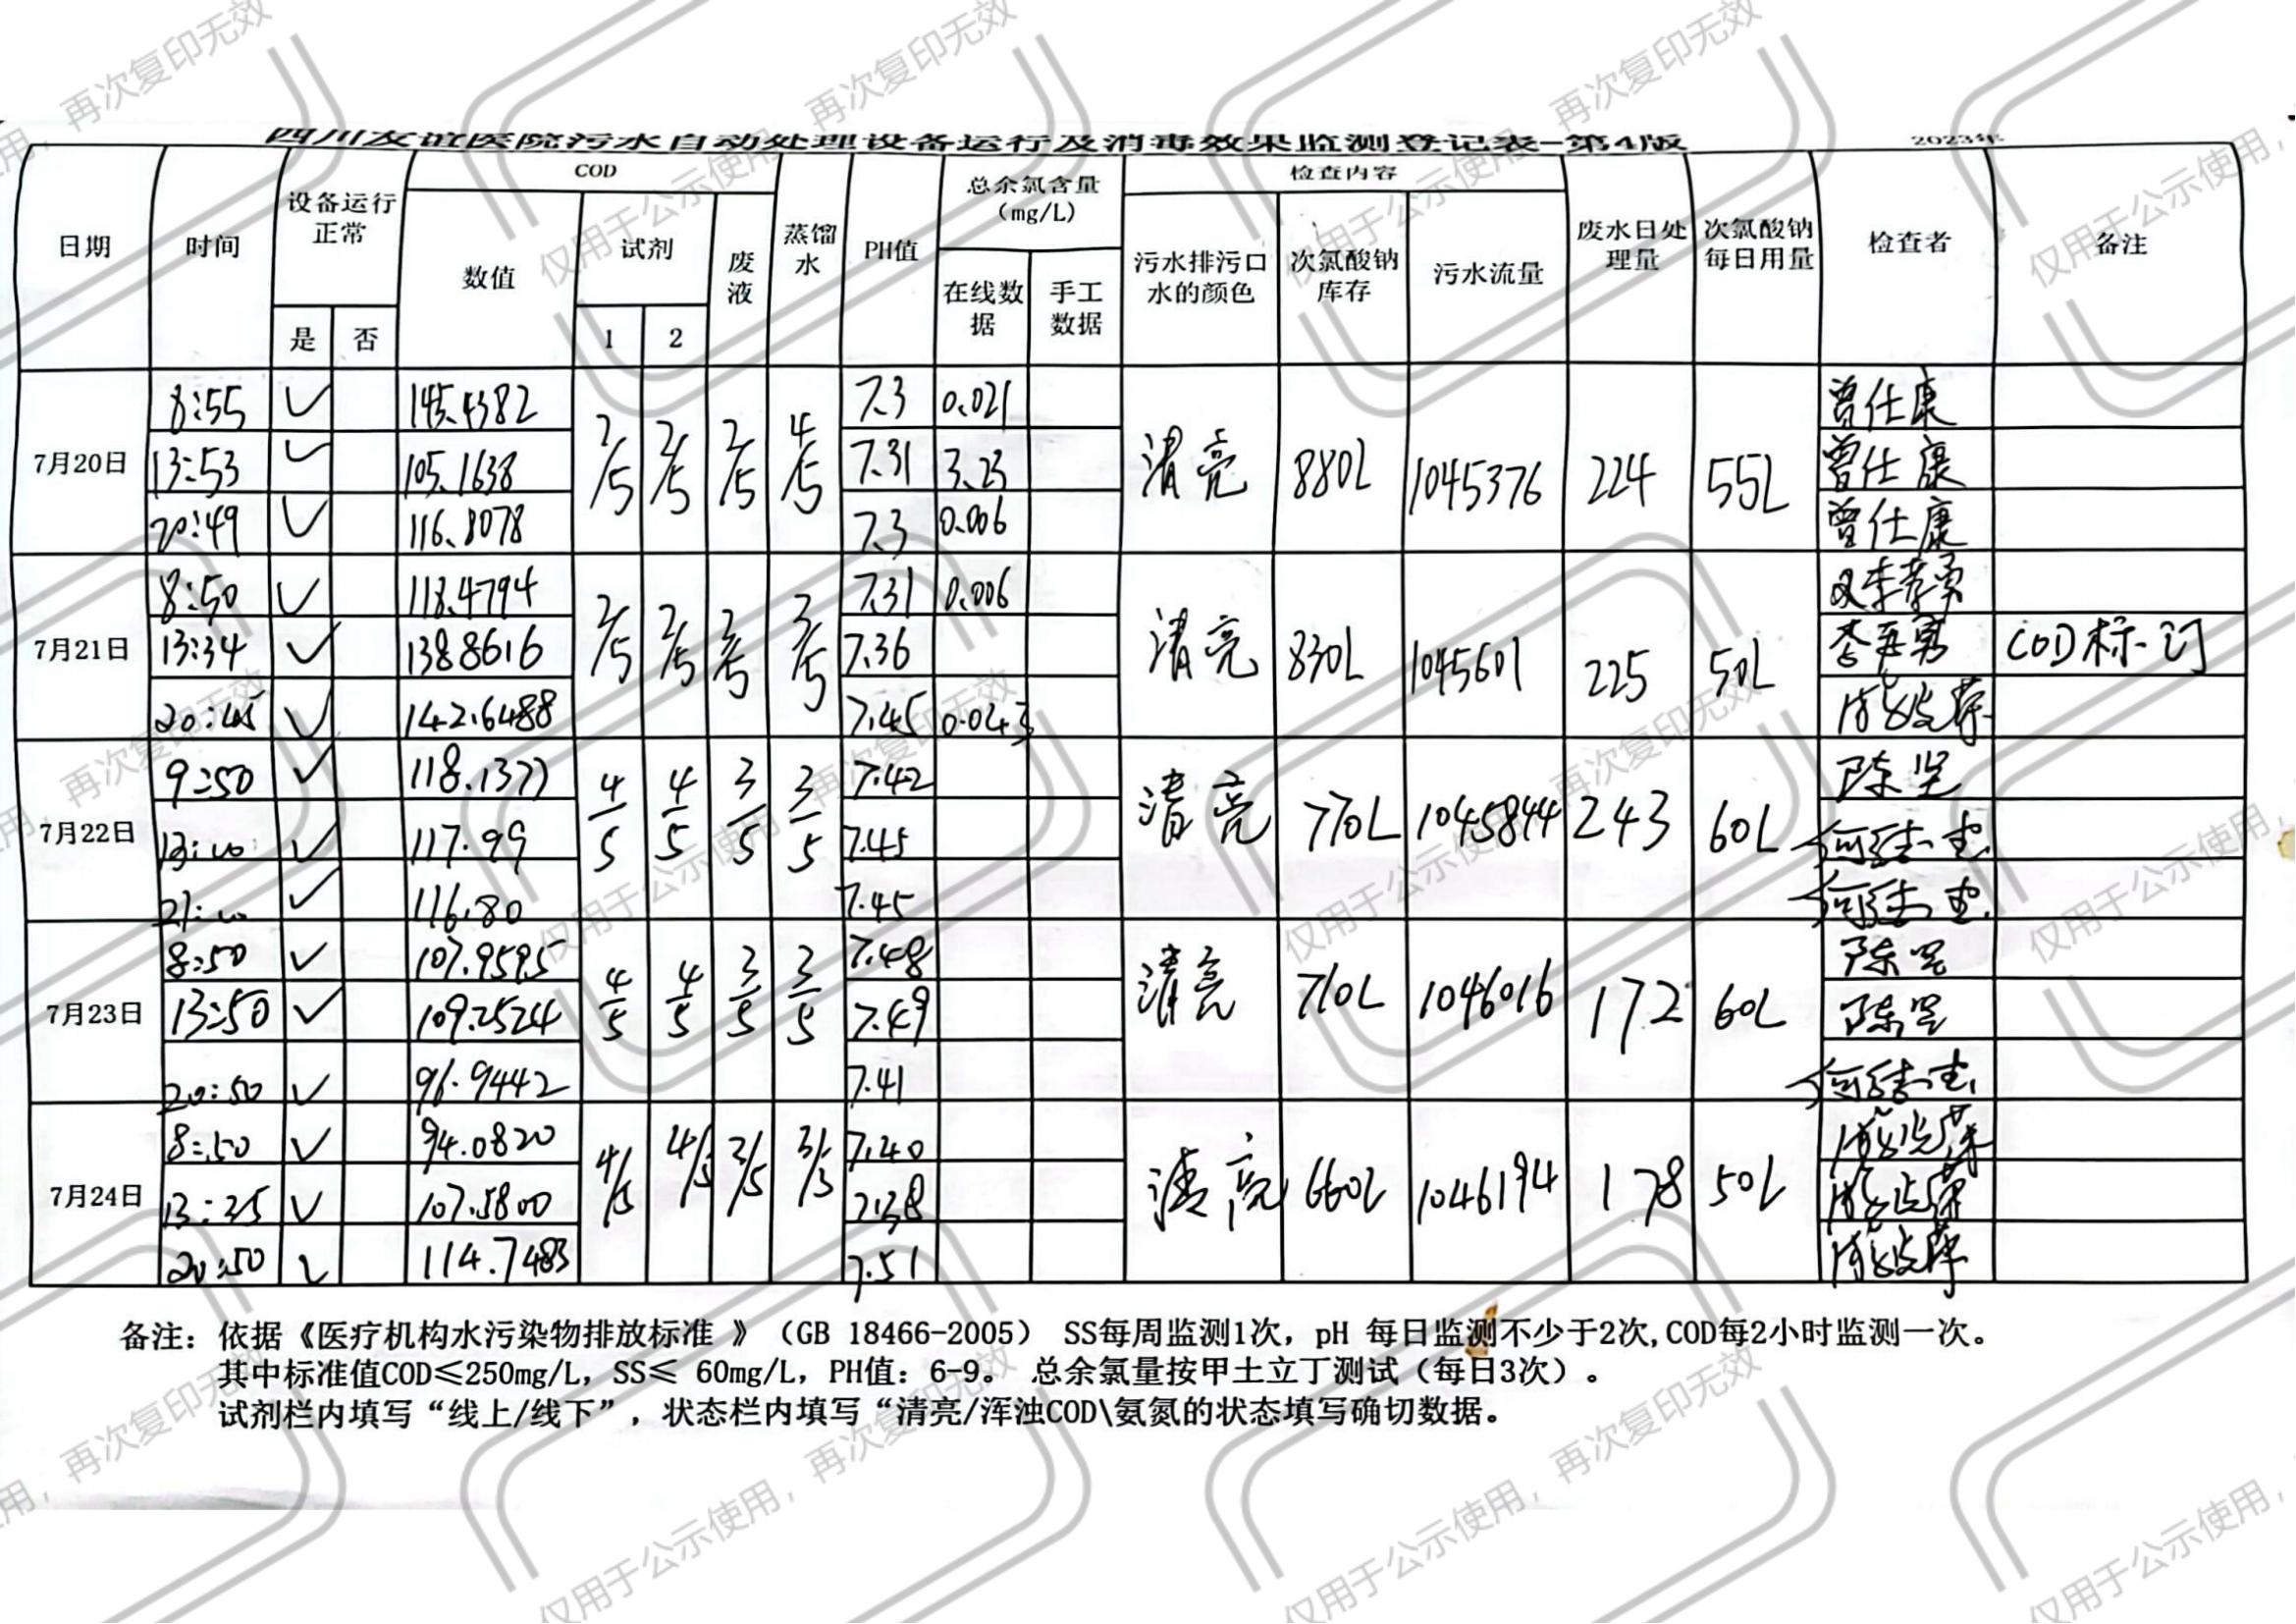 四川友谊医院污水自动处理设备运行及消毒效果监测登记表-第4版 2023年
日期 时间 设备运行正常 是 否 COD 数值 试剂 1 2 废液 蒸馏水 PH值 总余氯含量（mg/L) 在线数据 手工数据 检查内容 污水排污口水的颜色 次氯酸钠库存 污水流量 废水日处理量 次氯酸钠每日用量 检查者 备注
7月20日 2/5 2/5 2/5 4/5 清亮 880L 1045376 224 55L
8:55 ✓ 145.4382 7.3 0.021 曾仕康
13:53 ✓ 105.1638 7.31 3.23 曾仕康
20:49 ✓ 116.8078 7.3 0.006 曾仕康
7月21日 2/5 2/5 3/5 清亮 830L 1045601 225 50L
8:50 ✓ 118.4794 7.31 0.006
13:34 ✓ 138.8616 7.36 COD标订
20:45 ✓ 142.6488 7.45 0.043
7月22日 4/5 4/5 3/5 3/5 清亮 770L 1045844 243 60L
9:50 ✓ 118.1377 7.42 陈坚
✓ 117.99 7.45
✓ 116.80 7.45
7月23日 4/5 4/5 3/5 3/5 清亮 710L 1046016 172 60L
8:50 ✓ 107.9595 7.48 陈坚
13:50 ✓ 109.2524 7.49 陈坚
20:50 ✓ 96.9442 7.41
7月24日 4/5 4/5 3/5 清亮 660L 1046194 178 50L
8:50 ✓ 94.0820 7.40
13:35 ✓ 107.5800 7.38
20:50 ✓ 114.7483 7.51
备注：依据《医疗机构水污染物排放标准 》（GB 18466-2005） SS每周监测1次，pH 每日监测不少于2次,COD每2小时监测一次。
其中标准值COD≤250mg/L，SS≤ 60mg/L，PH值：6-9。 总余氯量按甲土立丁测试（每日3次）.
试剂栏内填写“线上/线下”，状态栏内填写“清亮/浑浊COD\氨氮的状态填写确切数据。
仅用于公示使用，再次复印无效